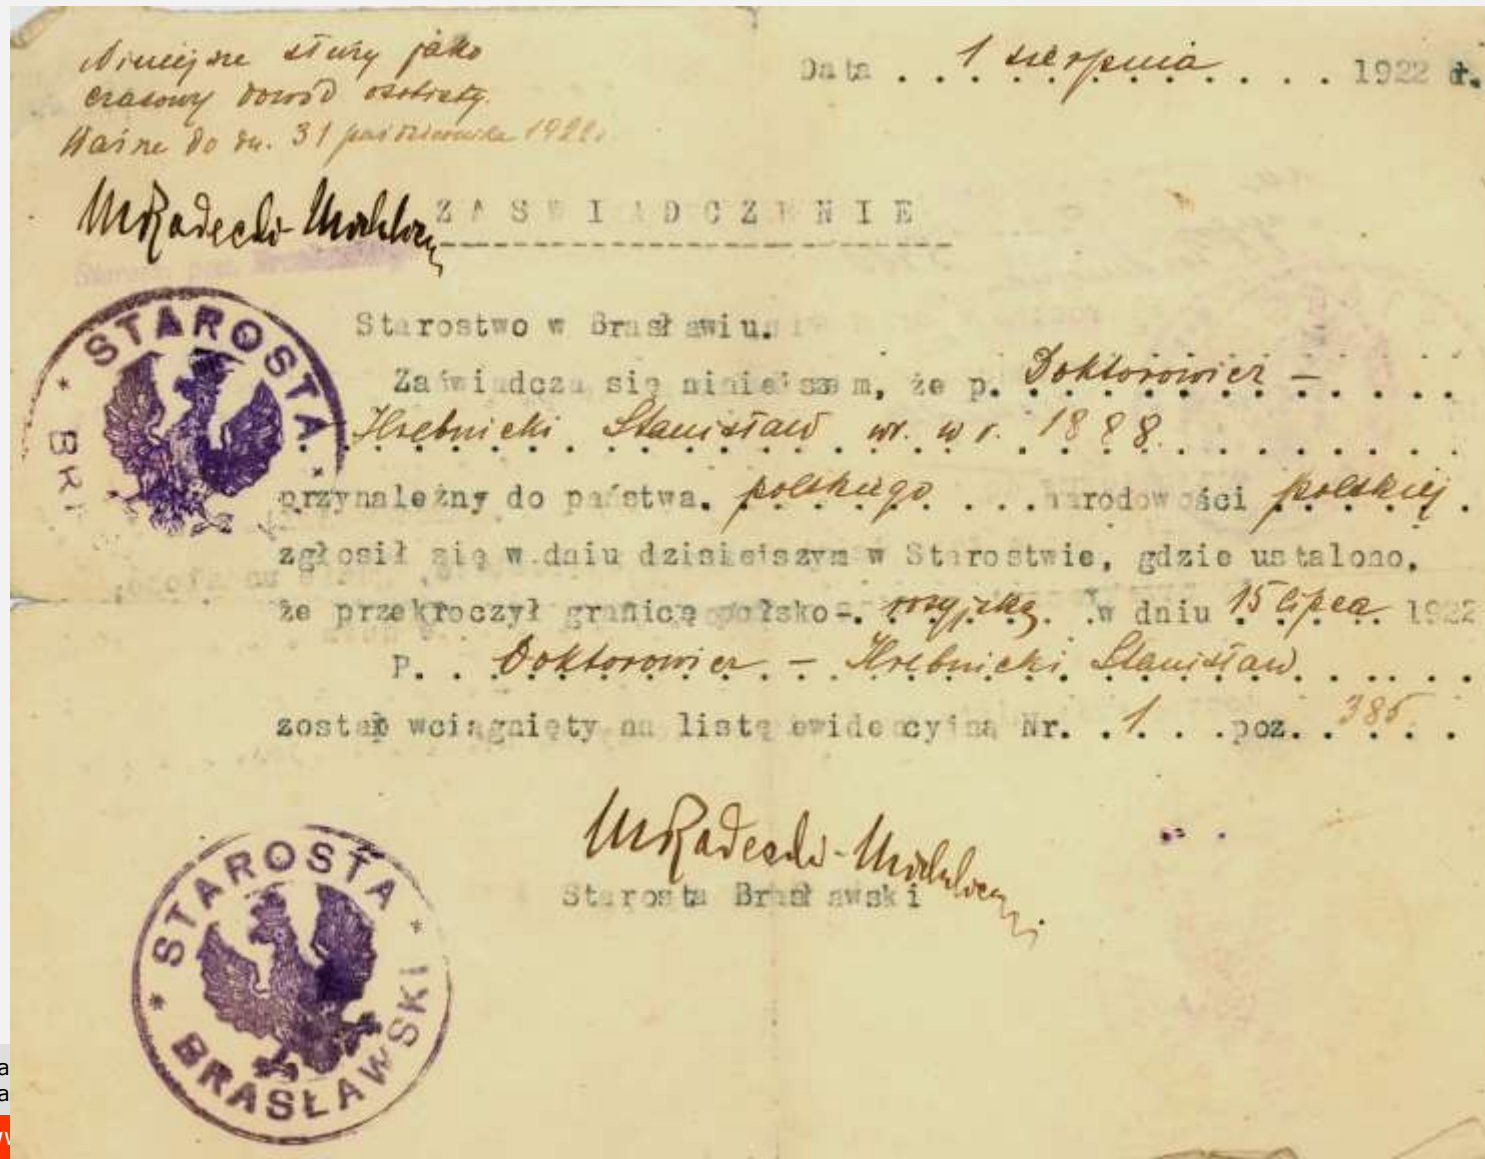 Niniejsze służy jako
czasowy dowód osobisty.
Ważne do dn. 31 października 1922.
Data . . . 1 sierpnia . . . . 1922 r.
ZASWIADCZENIE
STAROSTA
BR
Starostwo w Brasławiu.
Zaświadcza się niniejszem, że p. Doktorowicz –
Hrebnicki Stanisław ur. w r. 1888.
przynależny do państwa. polskiego . . . narodowości polskiej.
zgłosił się w dniu dzisiejszym w Starostwie, gdzie ustalono,
że przekroczył granicę polsko-. rosyjską. .w dniu 15 lipca 1922
P. . Doktorowicz – Hrebnicki Stanisław . . . .
został wciągnięty na listę ewidencyjną Nr. . 1 . . .poz. . 385 . .
Starosta Brasławski
STAROSTA
BRASŁAWSKI